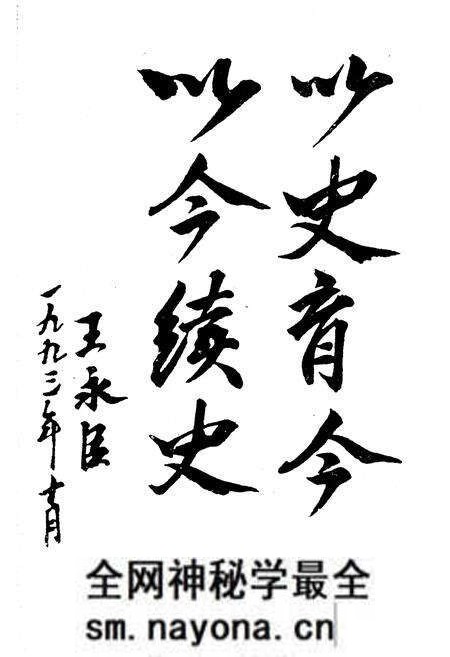 以史育今
以今续史
王永臣
一九九三年十月
全网神秘学最全
sm.nayona.cn